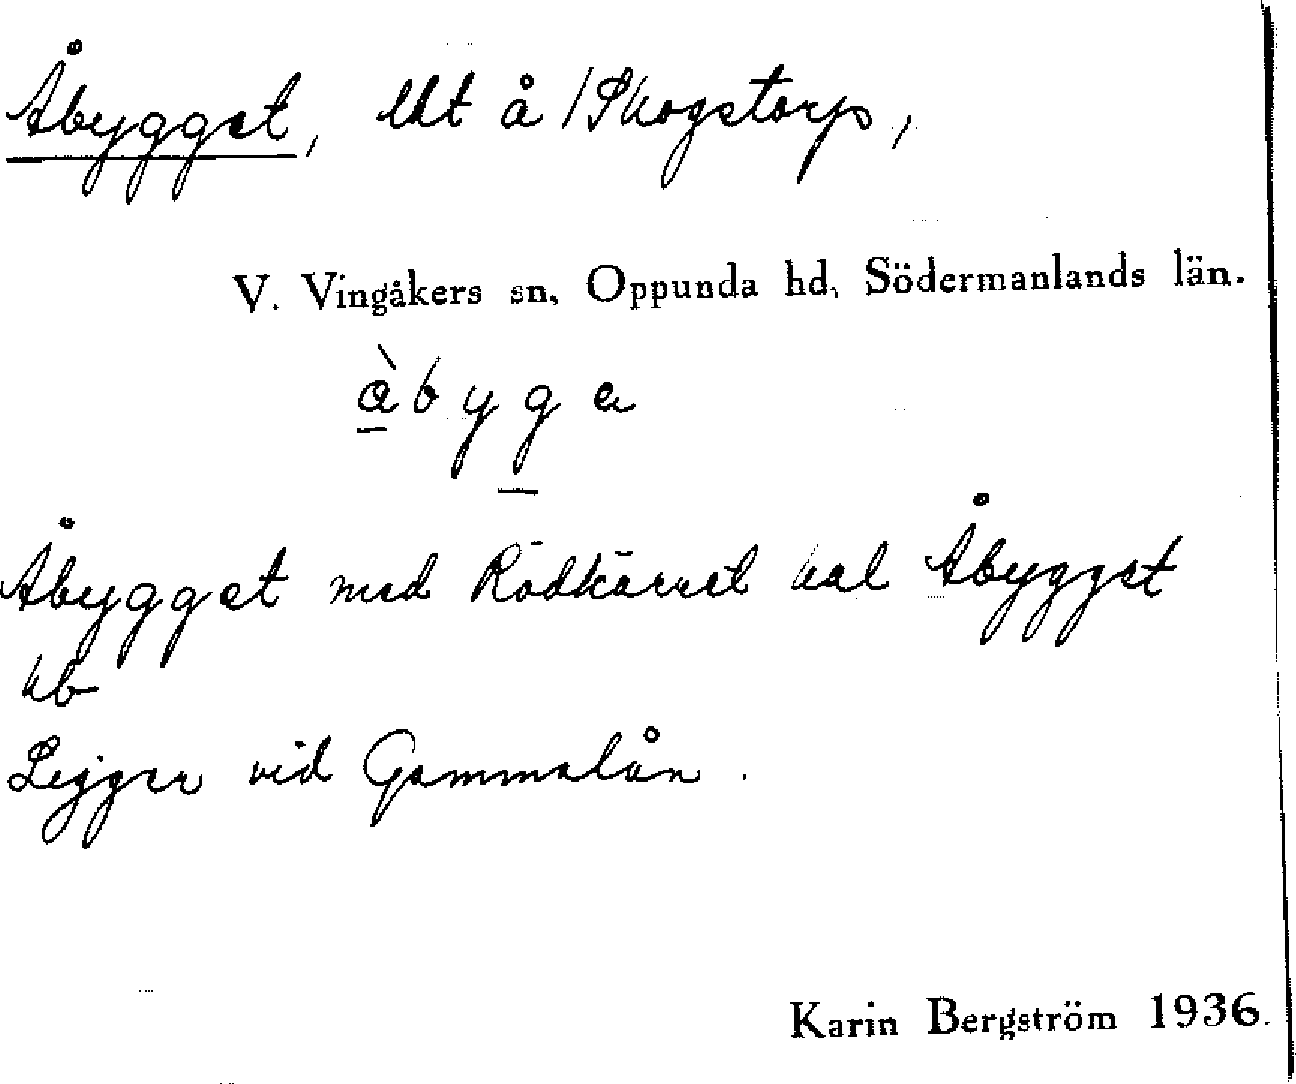 Åbygget, lht å /Skogstorp,
V. Vingåkers sn, Oppunda hd, Södermanlands län.
å̀byge
Åbygget med Rödkärret kal Åbygget
ub
Ligger vid Gammalån.
Karin Bergström 1936.